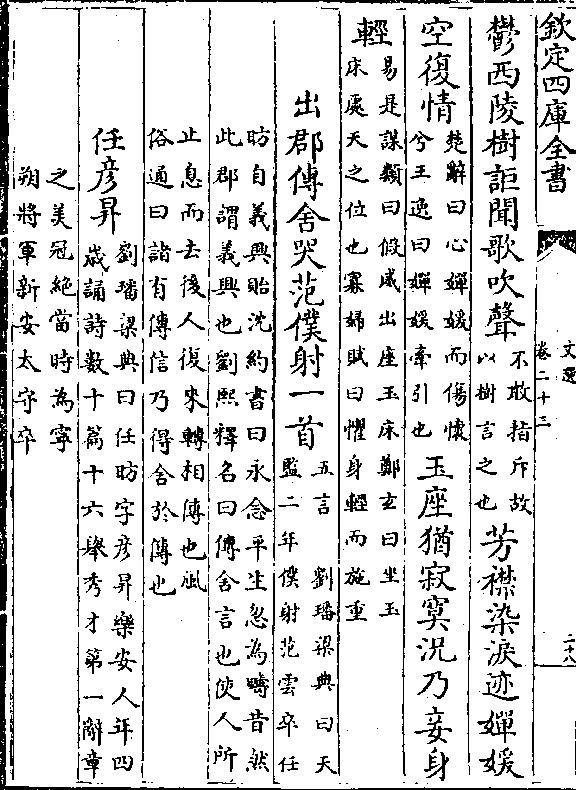 欽定四庫全書
文選
卷二十三
二十八
鬱西陵樹詎聞歌吹聲
不敢指斥故
以樹言之也
芳襟染淚迹嬋媛
空復情
楚辭曰心嬋媛而傷懷
兮王逸曰嬋媛牽引也
玉座猶寂寞況乃妾身
輕
易是謀類曰假威出座玉床鄭玄曰坐玉
床處天之位也寡婦賦曰懼身輕而施重
出郡傳舍哭范僕射一首
五言 劉璠梁典曰天
監二年僕射范雲卒任
昉自義興貽沈約書曰永念平生忽為疇昔然
此郡謂義興也劉熙釋名曰傳舍言也使人所
止息而去後人復來轉相傳也風
俗通曰諸有傳信乃得舍於傳也
任彥昇
劉璠梁典曰任昉字彥昇樂安人年四
歲誦詩數十篇十六舉秀才第一辭章
之美冠絕當時為寧
朔將軍新安太守卒